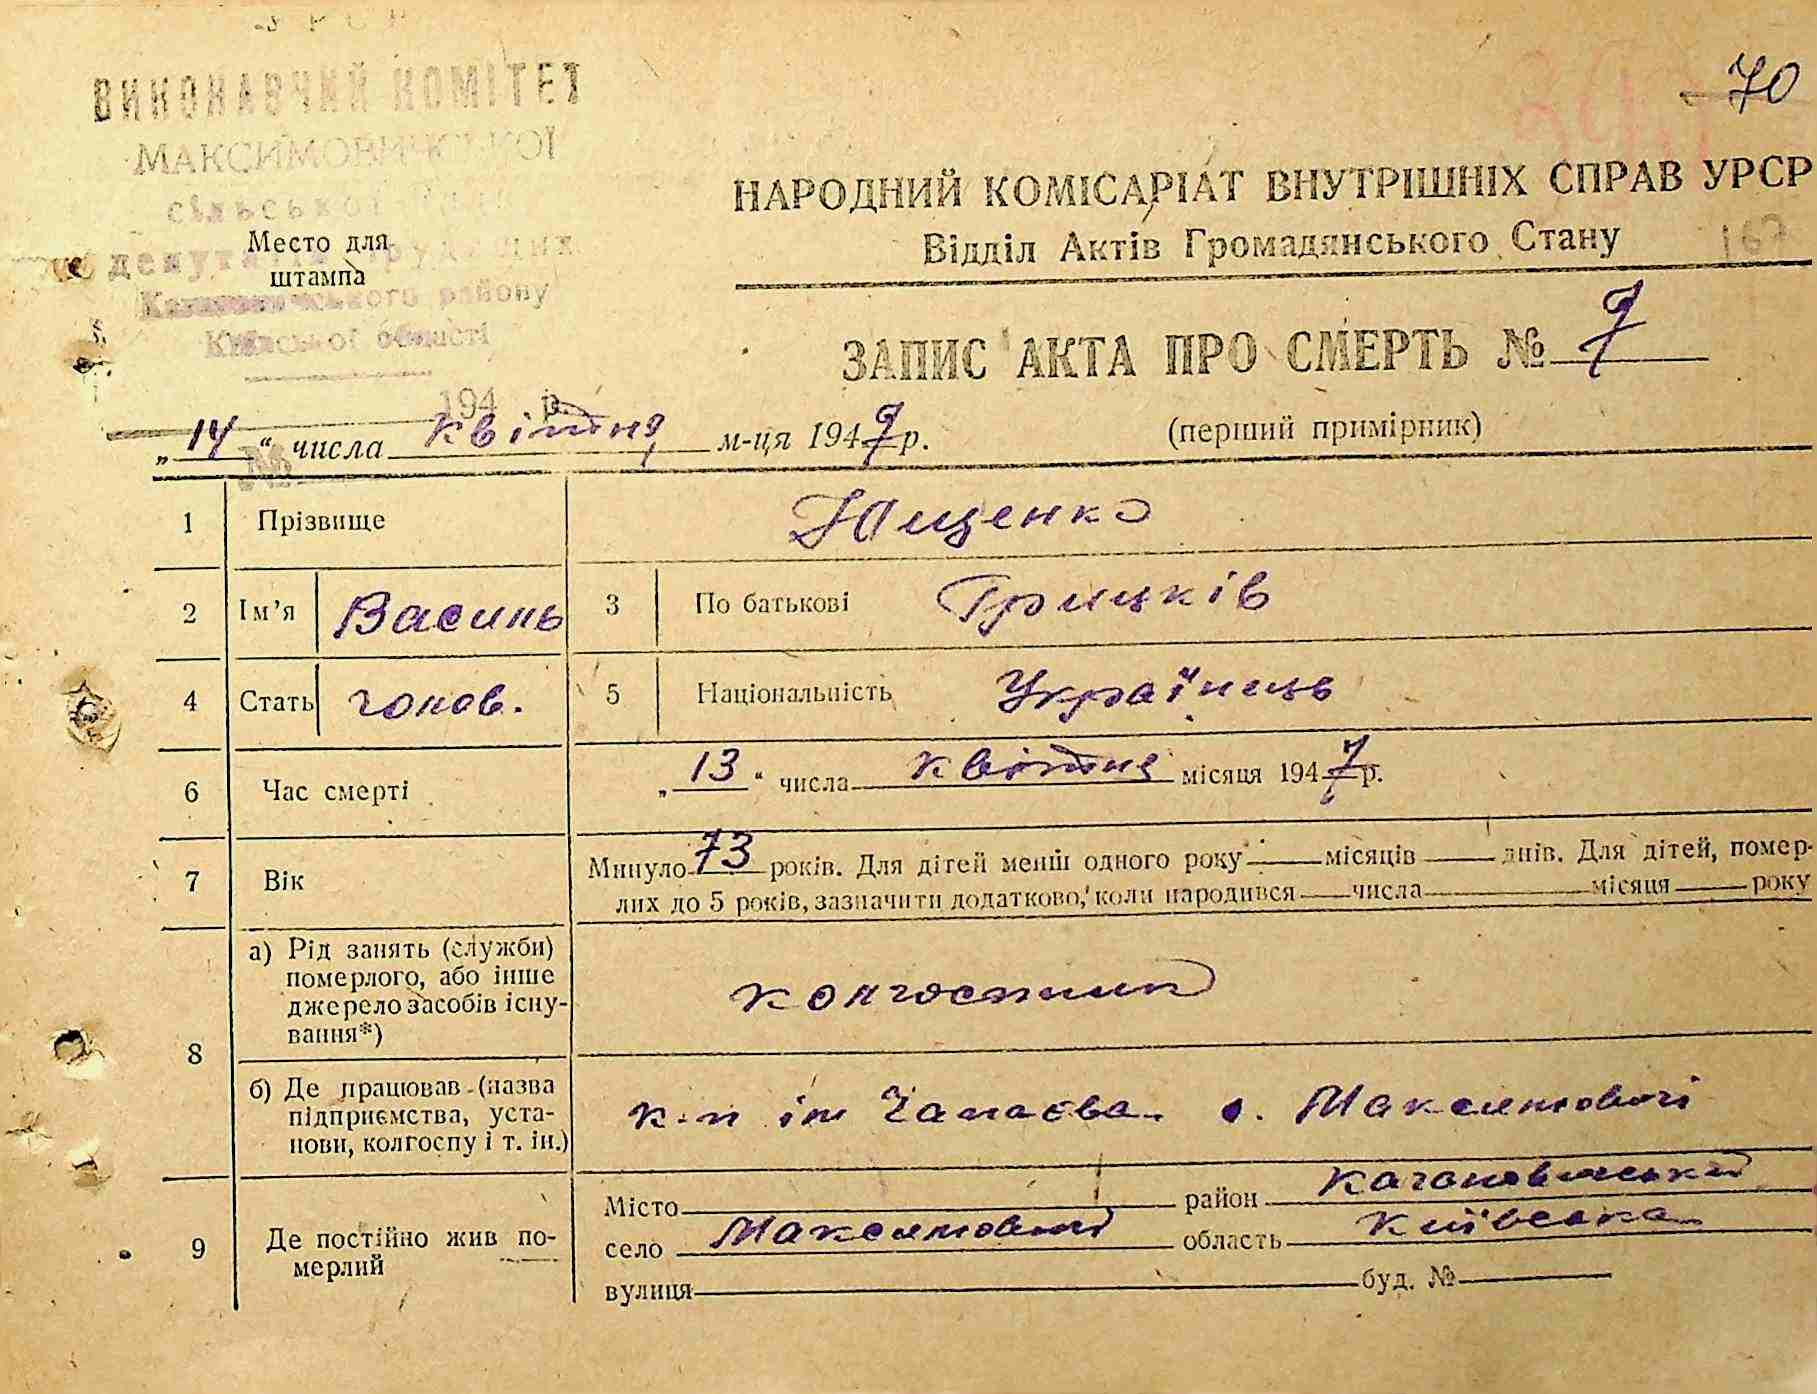 70
ВИКОНАВЧИЙ КОМІТЕТ
МАКСИМОВИЧСЬКОЇ
сільської
депутатів трудящих
Кагановичського району
Київської області
194 р.
№
Место для
штампа
НАРОДНИЙ КОМІСАРІАТ ВНУТРІШНІХ СПРАВ УРСР
Відділ Актів Громадянського Стану
ЗАПИС АКТА ПРО СМЕРТЬ № 7
„14“ числа квітня м-ця 1947 р. (перший примірник)
1 Прізвище Ющенко
2 Ім'я Василь 3 По батькові Грицків
4 Стать чолов. 5 Національність Українець
6 Час смерті „13“ числа квітня місяця 1947 р.
7 Вік Минуло 73 років. Для дітей менш одного року місяців днів. Для дітей, помер-
лих до 5 років, зазначити додатково, коли народився числа місяця року
8 а) Рід занять (служби)
померлого, або інше
джерело засобів існу-
вання*)
колгоспник
б) Де працював (назва
підприємства, уста-
нови, колгоспу і т. ін.)
к-п ім Чапаєва с. Максимовичі
9 Де постійно жив по-
мерлий
Місто район Кагановичський
село Максимовичі область Київська
вулиця буд. №